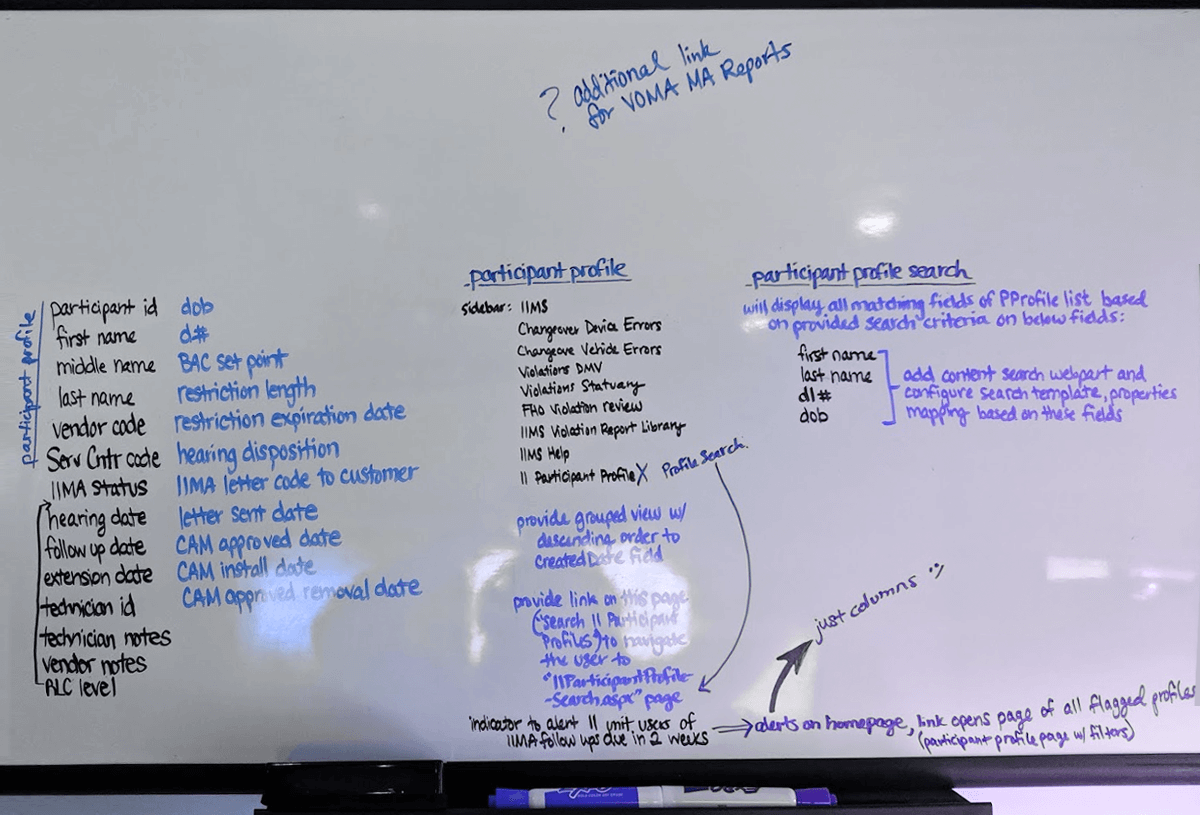 ? additional link
for VOMA MA Reports
participant profile
participant id
first name
middle name
last name
vendor code
Serv Cntr code
IIMA Status
hearing date
follow up date
extension date
technician id
technician notes
vendor notes
ALC level
dob
d#
BAC set point
restriction length
restriction expiration date
hearing disposition
IIMA letter code to customer
letter sent date
CAM approved date
CAM install date
CAM approved removal date
participant profile
Sidebar: IIMS
Changeover Device Errors
Changeove Vehicle Errors
Violations DMV
Violations Statuary
FHO Violation review
IIMS Violation Report Library
IIMS Help
II Participant Profile X Profile Search.
provide grouped view w/
descending order to
Created Date field
provide link on this page
("Search II Participant
Profiles") to navigate
the user to
"IIParticipantProfile-
-Search.aspx" page
indicator to alert II unit users of
IIMA follow ups due in 2 weeks
participant profile search
will display all matching fields of PProfile list based
on provided search criteria on below fields:
first name
last name
dl#
dob
add content search webpart and
configure search template, properties
mapping based on these fields
just columns :)
alerts on homepage, link opens page of all flagged profiles
(participant profile page w/ filters)